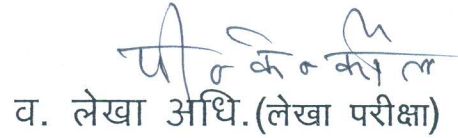 पी० के० कौल
व. लेखा अधि.(लेखा परीक्षा)